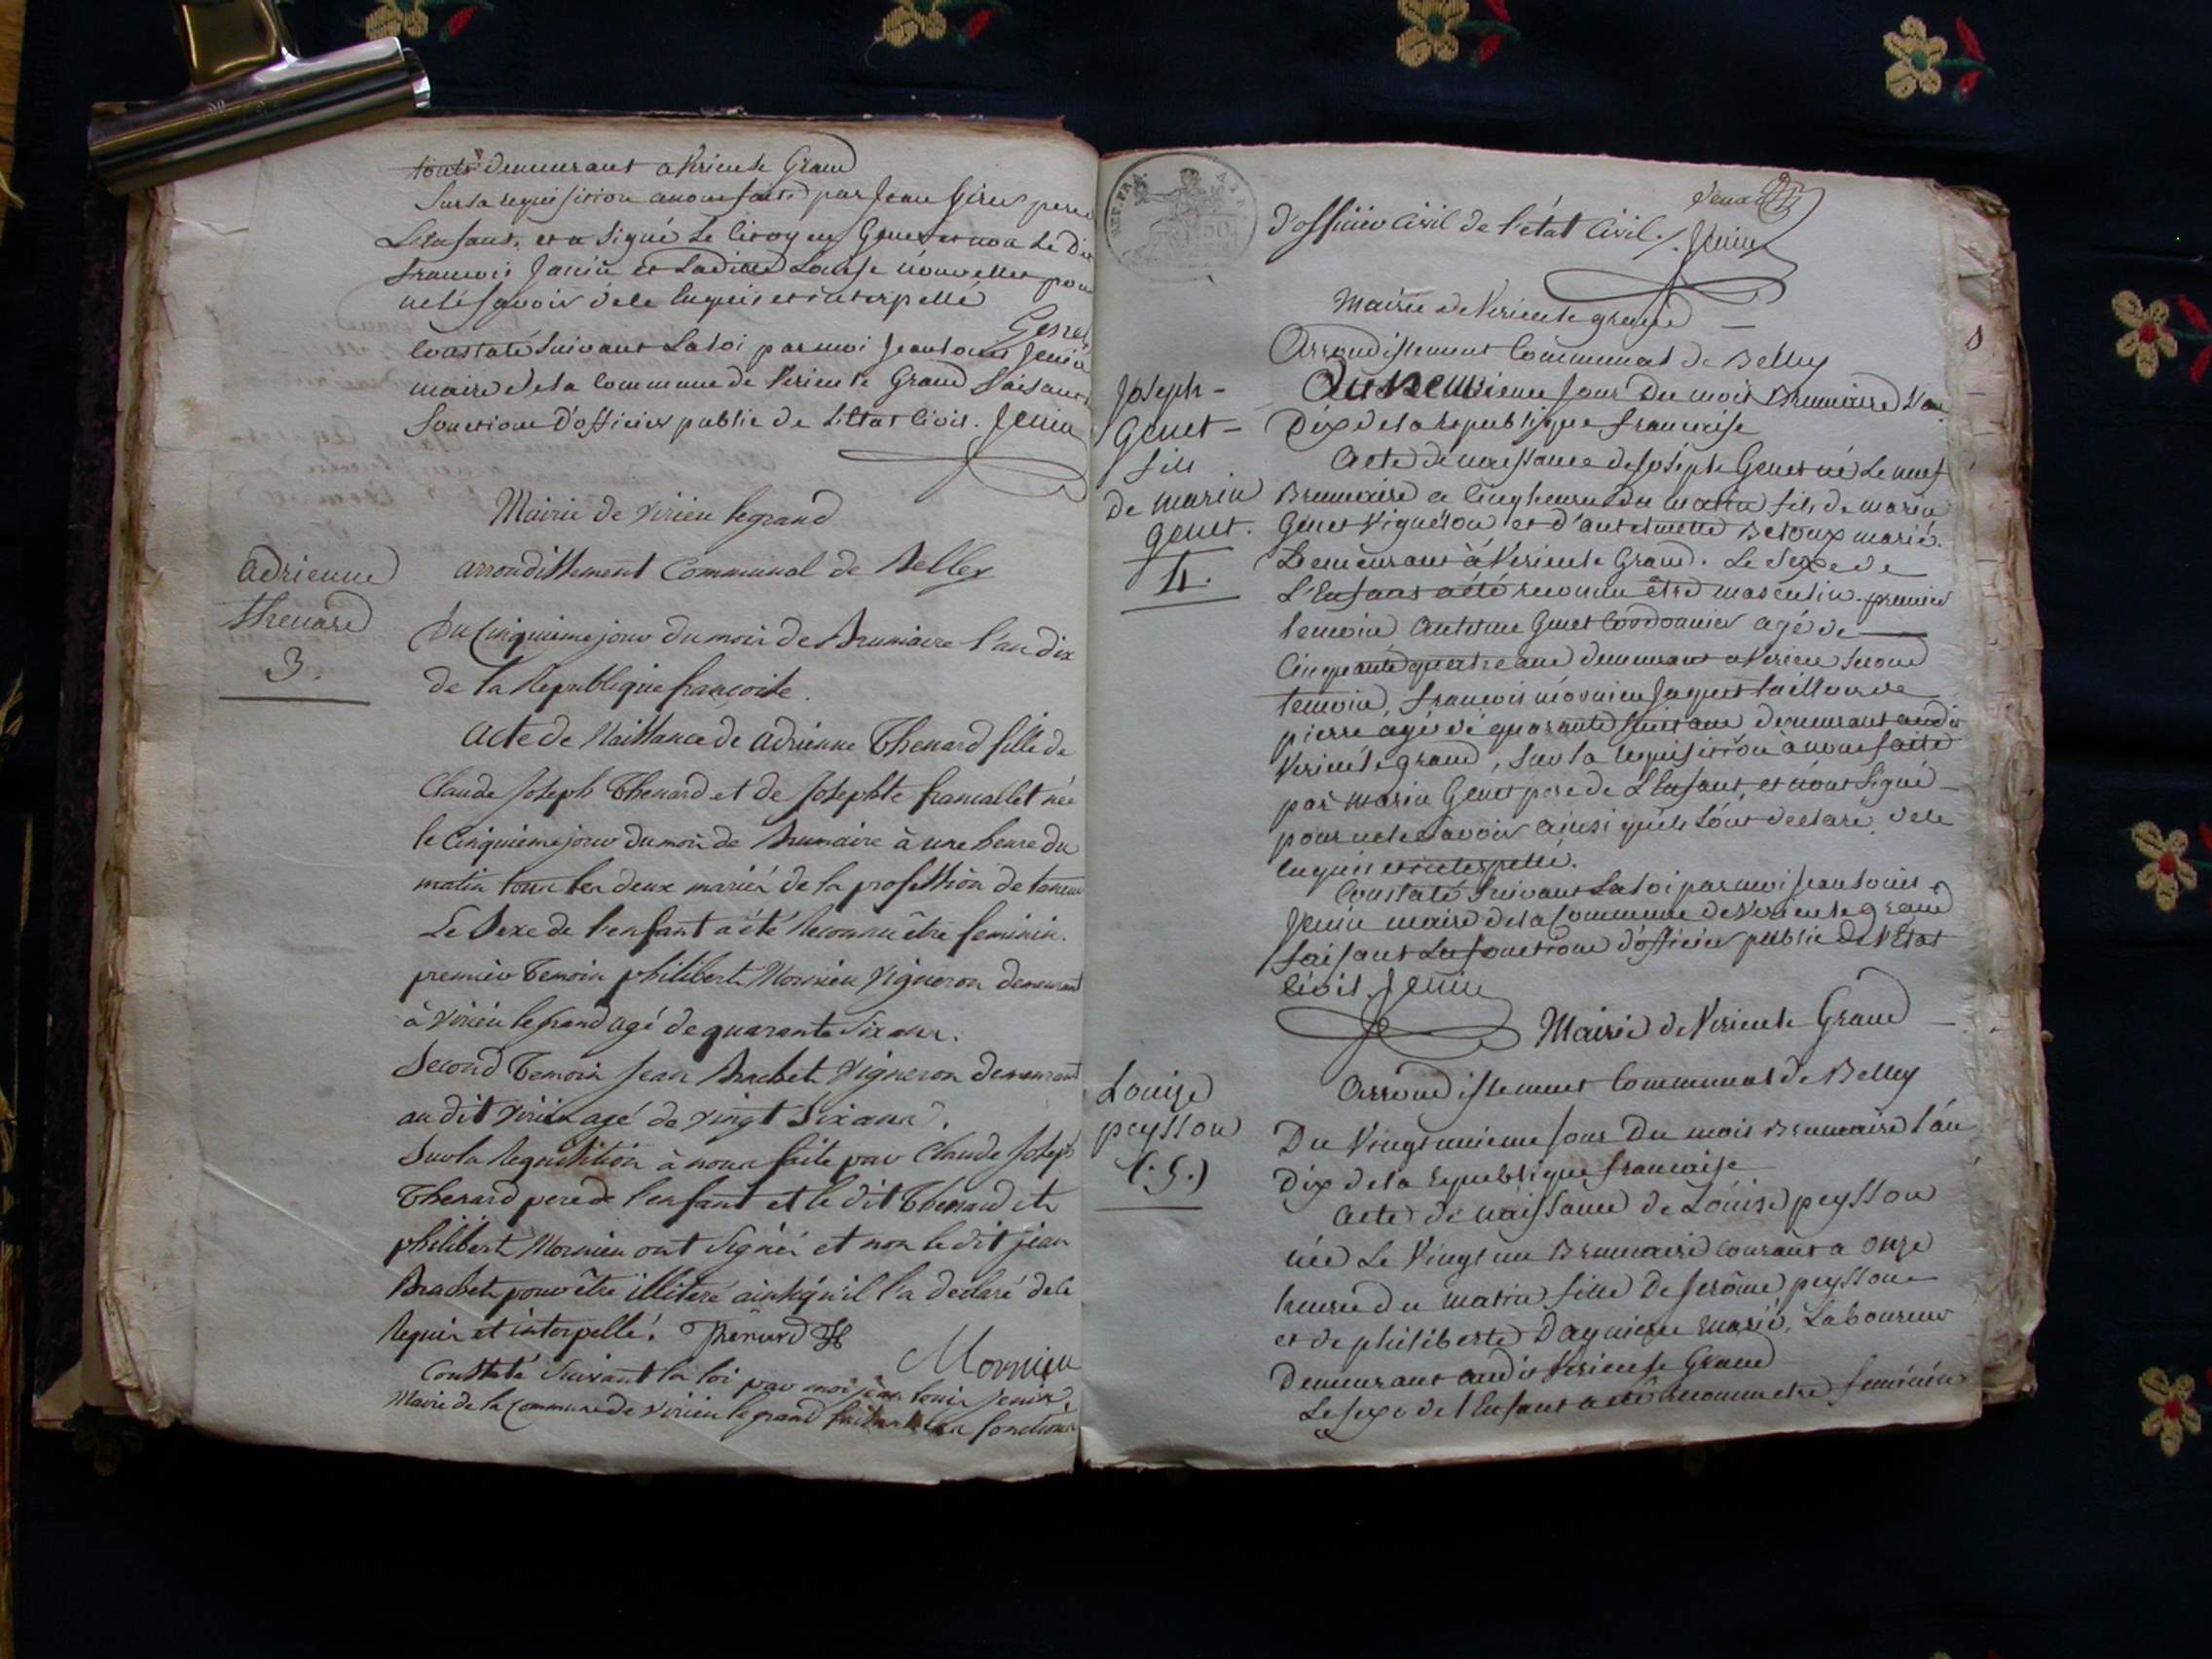 touts demeurant a Virieu le Grand
Sur la requisition a nous faite par Jean Giru pere
L'enfant, et a signé le citoyen Genet et non le dit
francois Janin et Ladite Louise nouvelles pour
ne le savoir de le enquis et interpellé
Genet
Constaté suivant La loi par moi Jean Louis Jenin
maire de la Commune de Virieu le Grand faisant
fonctions D'officier public de L'Etat Civil. Jenin
Mairie de Virieu le grand
adrienne
thenard
3.
arrondissement Communal de Belley
Du Cinquieme jour du mois de Brumaire l'an dix
de la Republique françoise.
acte de Naissance de adrienne Thenard fille de
Claude Joseph Thenard et de Josephte francallet née
le Cinquieme jour du mois de Brumaire à une heure du
matin tous les deux mariés de la profession de taneur
Le Sexe de l'enfant a été reconnu être feminin.
premier temoin philibert Mornieu Vigneron demeurant
à Virieu le grand agé de quarante six ans.
Second temoin Jean Brachet Vigneron demeurant
au dit Virieu agé de vingt six ans.
Sur la requisition à nous faite par Claude Joseph
Thenard pere de l'enfant et le dit Thenard et
philibert Mornieu ont signés et non le dit jean
Brachet pour être illiteré ainsi qu'il l'a declaré de le
requis et interpellé. Thenard
Mornieu
Constaté suivant la loi par moi jean louis Jenin,
Maire de la Commune de Virieu le grand faisant les fonctions
d'officier Civil de l'état Civil. Jenin
Mairie de Virieu le grand
Arrondissement Communal de Belley
Joseph
Genet
fils
de marin
genet.
4.
Du neuvieme Jour Du mois Brumaire L'an
Dix de la republique francaise
Acte de naissance de Joseph Genet né Le neuf
Brumaire a Cinq heures du matin fils de marin
Genet Vigneron et d'antelmette Betoux mariés.
Demeurant à Virieu le Grand. Le Sexe de
L'Enfant a été reconnu être masculin. premier
temoin Antelme Genet Cordonnier agé de
Cinquante quatre ans demeurant a Virieu second
temoin, francois mornieu Jaquet tailleur de
pierre agé de quarante huit ans demeurant audit
Virieu le grand, Sur la requisition à nous faite
par marin Genet pere de L'Enfant, et n'ont Signé
pour ne le savoir ainsi qu'ils L'ont declaré, de le
enquis et interpellé.
Constaté suivant La loi par moi Jean Louis
Jenin maire de la Commune de Virieu le grand
faisant Les fonctions d'officier public de l'Etat
Civil. Jenin
Mairie de Virieu le Grand
Arrondissement Communal de Belley
Louise
peysson
(5.)
Du Vingt unieme Jour Du mois Brumaire l'an
Dix de la republique francaise
Acte de naissance de Louise peysson
née Le Vingt un Brumaire courant a onze
heures du matin fille de Jerôme peysson
et de philiberte Dagniere mariés, Laboureur
Demeurant audit Virieu le Grand
Le sexe de l'Enfant a été reconnu etre feminin